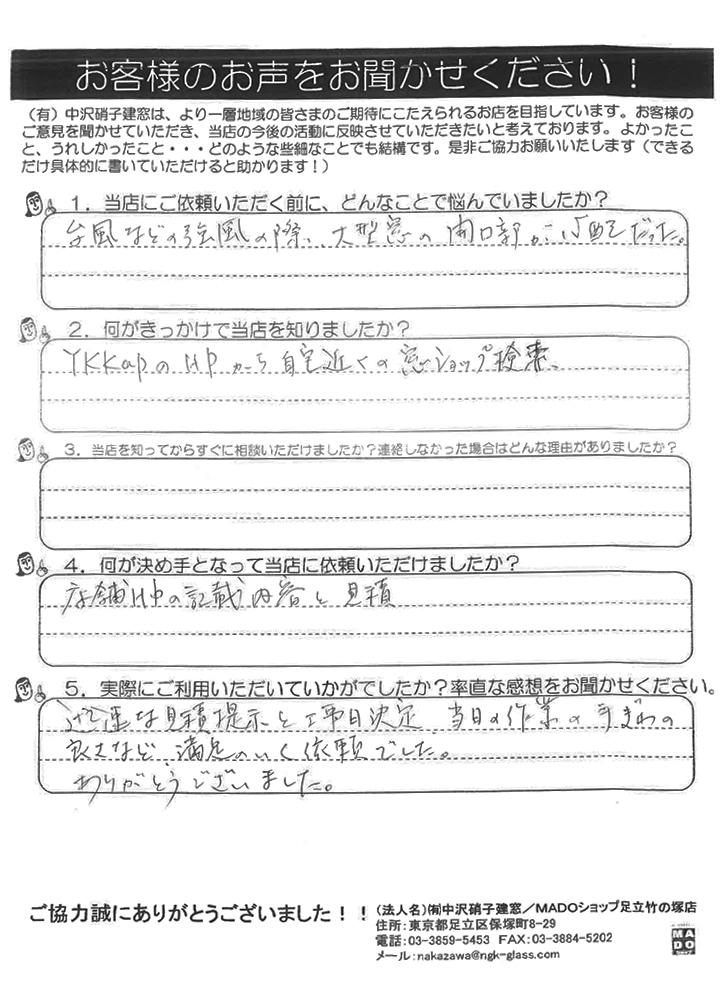 お客様のお声をお聞かせください！
（有）中沢硝子建窓は、より一層地域の皆さまのご期待にこたえられるお店を目指しています。お客様の
ご意見を聞かせていただき、当店の今後の活動に反映させていただきたいと考えております。よかったこ
と、うれしかったこと・・・どのような些細なことでも結構です。是非ご協力お願いいたします（できる
だけ具体的に書いていただけると助かります！）
１．当店にご依頼いただく前に、どんなことで悩んでいましたか？
台風などの強風の際、大型窓の開口部が心配だった。
２．何がきっかけで当店を知りましたか？
YKKapのHPから自宅近くの窓ショップ検索、
３．当店を知ってからすぐに相談いただけましたか？連絡しなかった場合はどんな理由がありましたか？
４．何が決め手となって当店に依頼いただけましたか？
店舗HPの記載内容と見積
５．実際にご利用いただいていかがでしたか？率直な感想をお聞かせください。
迅速な見積提示と工事日決定、当日の作業の手ぎわの
良さなど、満足のいく依頼でした。
ありがとうございました。
ご協力誠にありがとうございました！！
（法人名）㈲中沢硝子建窓／MADOショップ足立竹の塚店
住所：東京都足立区保塚町8-29
電話：03-3859-5453 FAX：03-3884-5202
メール：nakazawa@ngk-glass.com
MADO